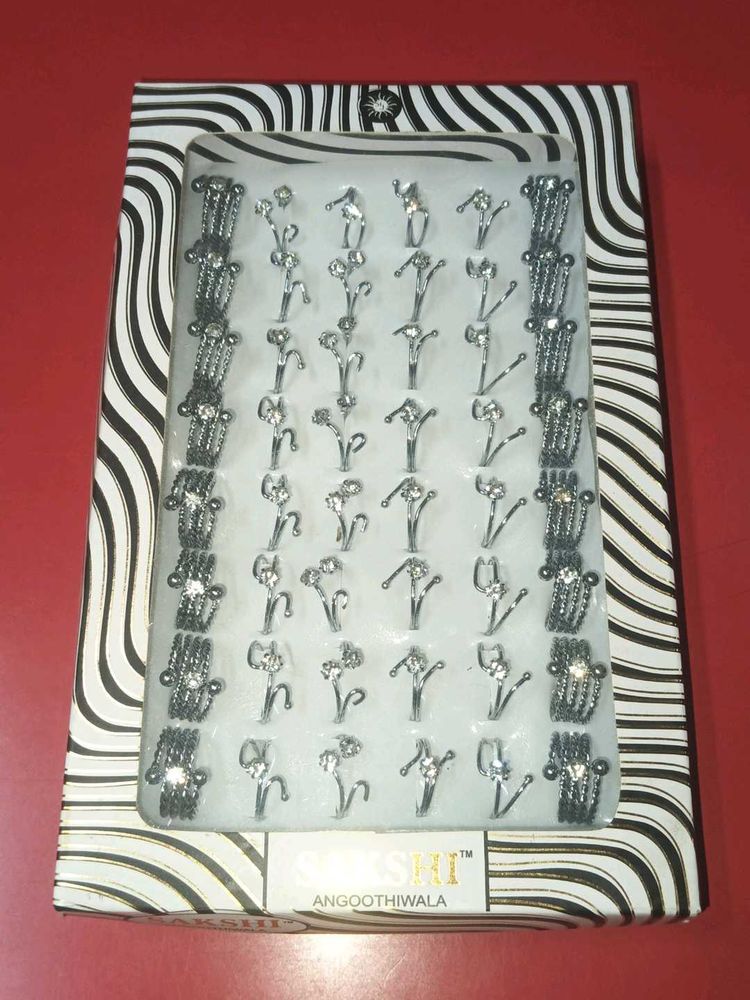 SAKSHI™
ANGOOTHIWALA
SAKSHI™